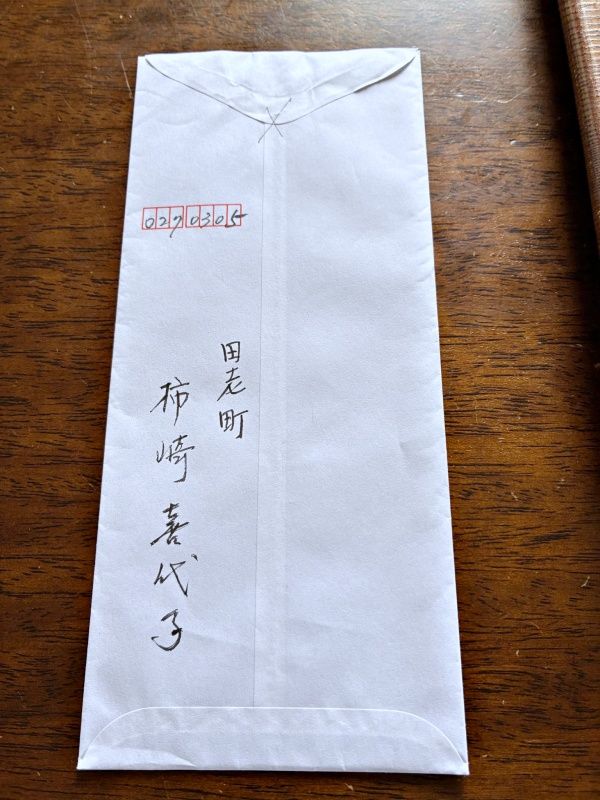 〆
0270305
田老町
柿崎喜代子